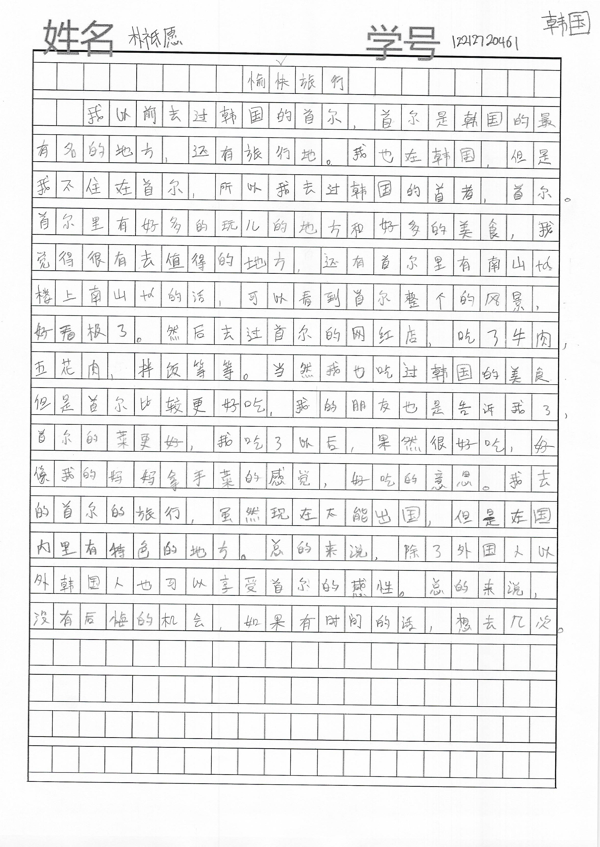 韩国
姓名 朴祗愿 学号 12212720461
愉快旅行
我以前去过韩国的首尔，首尔是韩国的最
有名的地方，还有旅行地。我也在韩国，但是
我不住在首尔，所以我去过韩国的首者，首尔。
首尔里有好多的玩儿的地方和好多的美食，我
觉得很有去值得的地方，还有首尔里有南山
楼上南山的话，可以看到首尔整个的风景，
好看极了。然后去过首尔的网红店，吃了牛肉，
五花肉，拌饭等等。当然我也吃过韩国的美食
但是首尔比较更好吃，我的朋友也是告诉我了，
首尔的菜更好，我吃了以后，果然很好吃，好
像我的妈妈拿手菜的感觉，好吃的意思。我去
的首尔的旅行，虽然现在不能出国，但是在国
内里有特色的地方。总的来说，除了外国人以
外韩国人也可以享受首尔的感性。总的来说，
没有后悔的机会，如果有时间的话，想去几次。